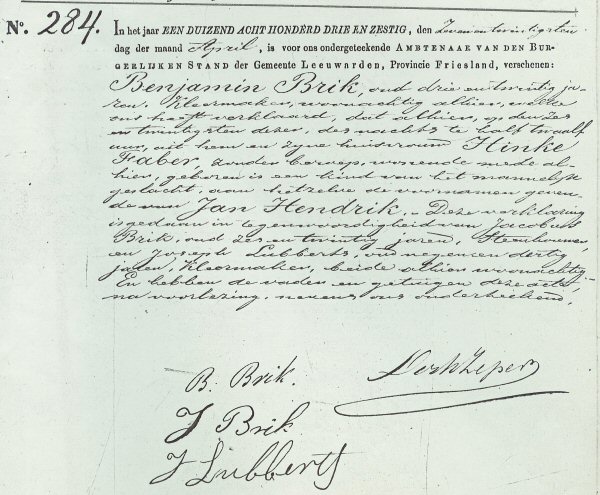 N°. 284.
In het jaar EEN DUIZEND ACHT HONDERD DRIE EN ZESTIG, den Zevenentwintigsten
dag der maand April, is voor ons ondergeteekende AMBTENAAR VAN DEN BUR-
GERLIJKEN STAND der Gemeente Leeuwarden, Provincie Friesland, verschenen:
Benjamin Brik, oud drie entwintig ja-
ren, Kleermaker, woonachtig alhier, welke
ons heeft verklaard, dat alhier, op den zes
en twintigsten dezer, des nachts te half twaalf
uur, uit hem en zijne huisvrouw Hinke
Faber, zonder beroep, wonende mede al-
hier, geboren is een kind van het mannelijk
geslacht, aan hetzelve de voornamen geven-
de van Jan Hendrik. Deze verklaring
is gedaan in tegenwoordigheid van Jacobus
Brik, oud zes en twintig jaren, Steenhouwer,
en Joseph Lubberts, oud negen en dertig
jaren, Kleermaker, beide alhier woonachtig
En hebben de vader en getuigen deze acte,
na voorlezing, nevens ons onderteekend.
B. Brik.
J Brik
J Lubberts